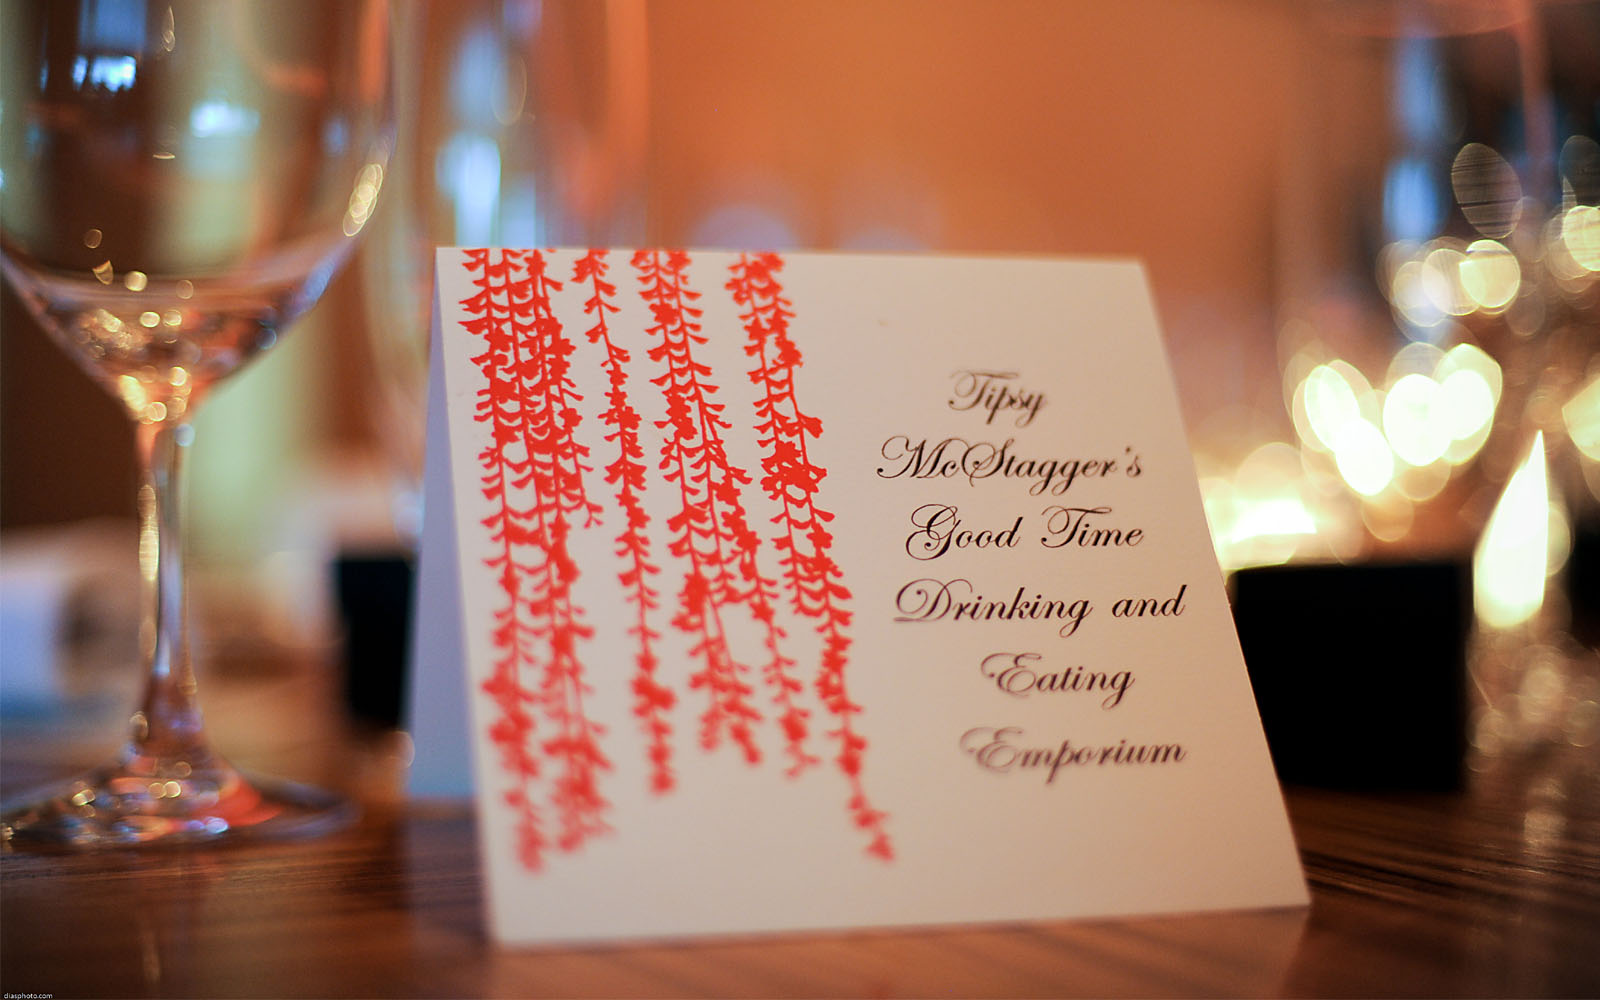 Tipsy
McStagger's
Good Time
Drinking and
Eating
Emporium
diasphoto.com